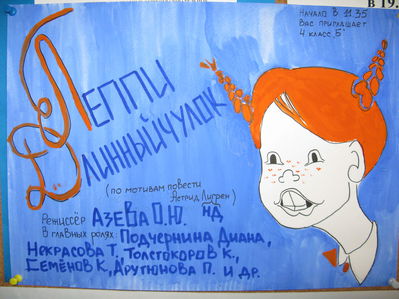 в 19.
Начало в 11 35
Вас приглашает
4 класс „Б"
Пеппи
Длинныйчулок
(по мотивам повести
Астрид Лигрен)
нд
Режиссёр Азева О.Ю.
В главных ролях: Подчернина Диана,
Некрасова Т, Толстокоров К.,
Семёнов К., Арутюнова П. и др.